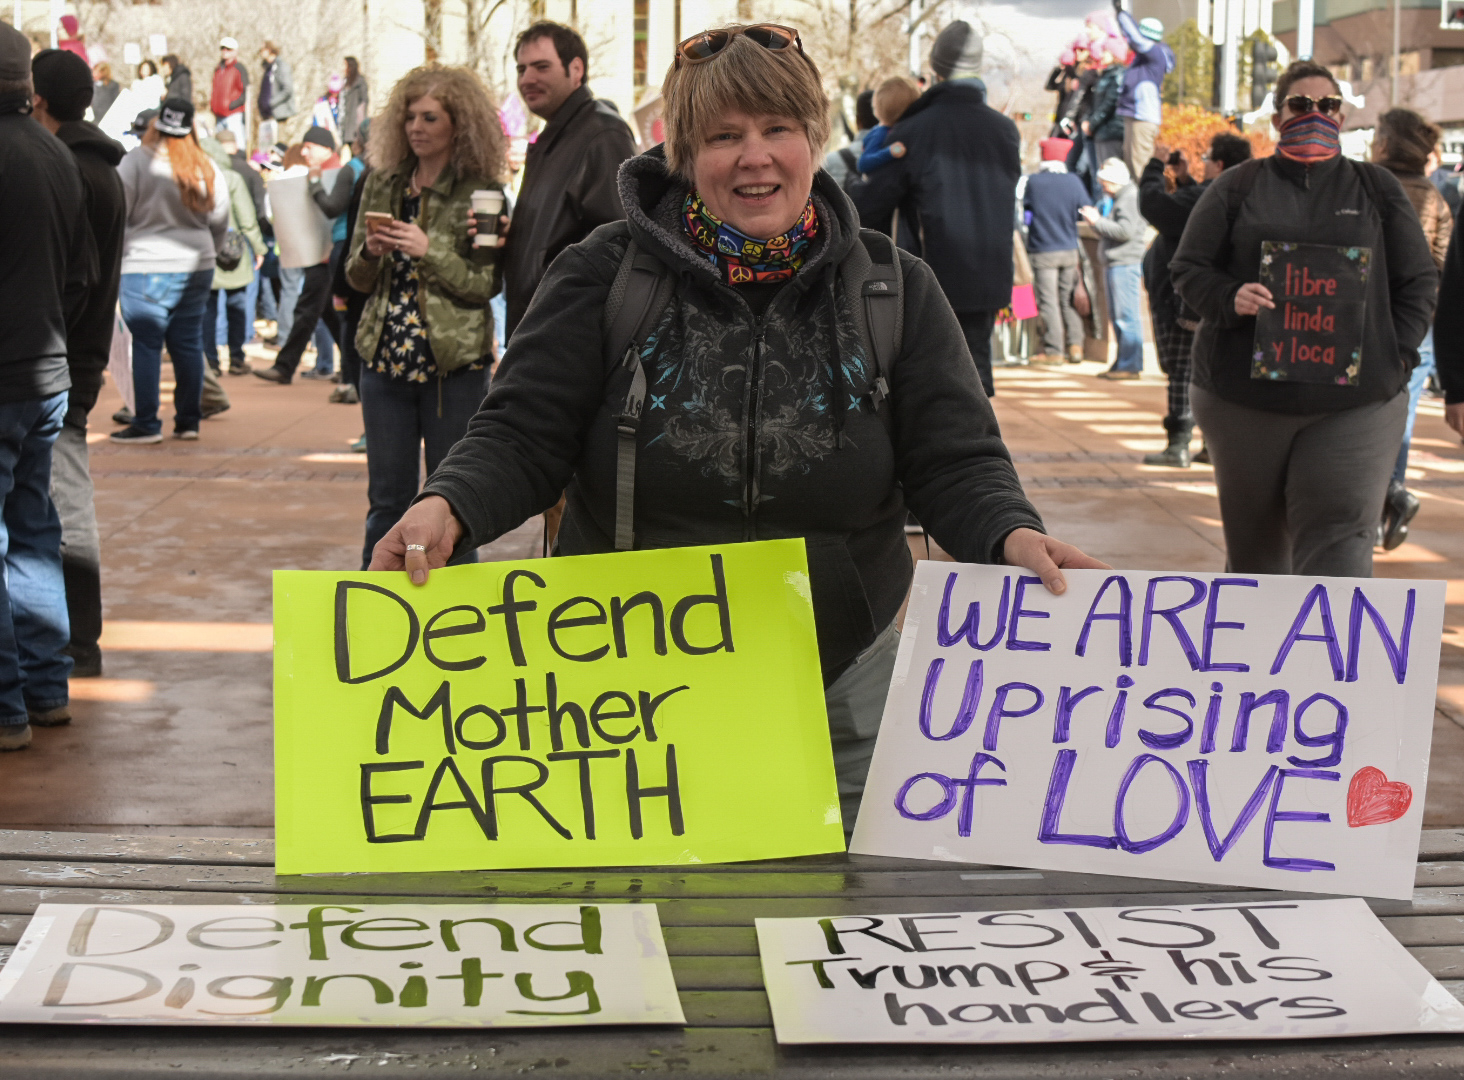 libre
linda
y loca
Defend
Mother
EARTH
WE ARE AN
Uprising
of LOVE
Defend
Dignity
RESIST
Trump & his
handlers